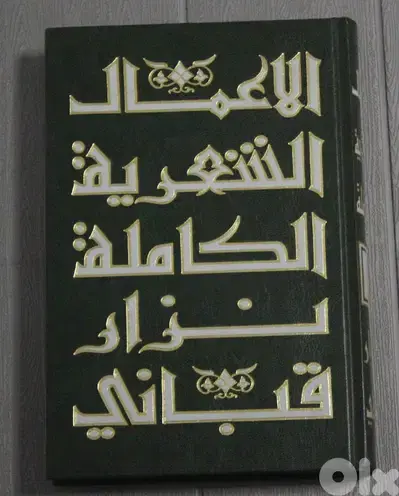 الاعمال
الشعرية
الكاملة
نزار
قباني
OLX